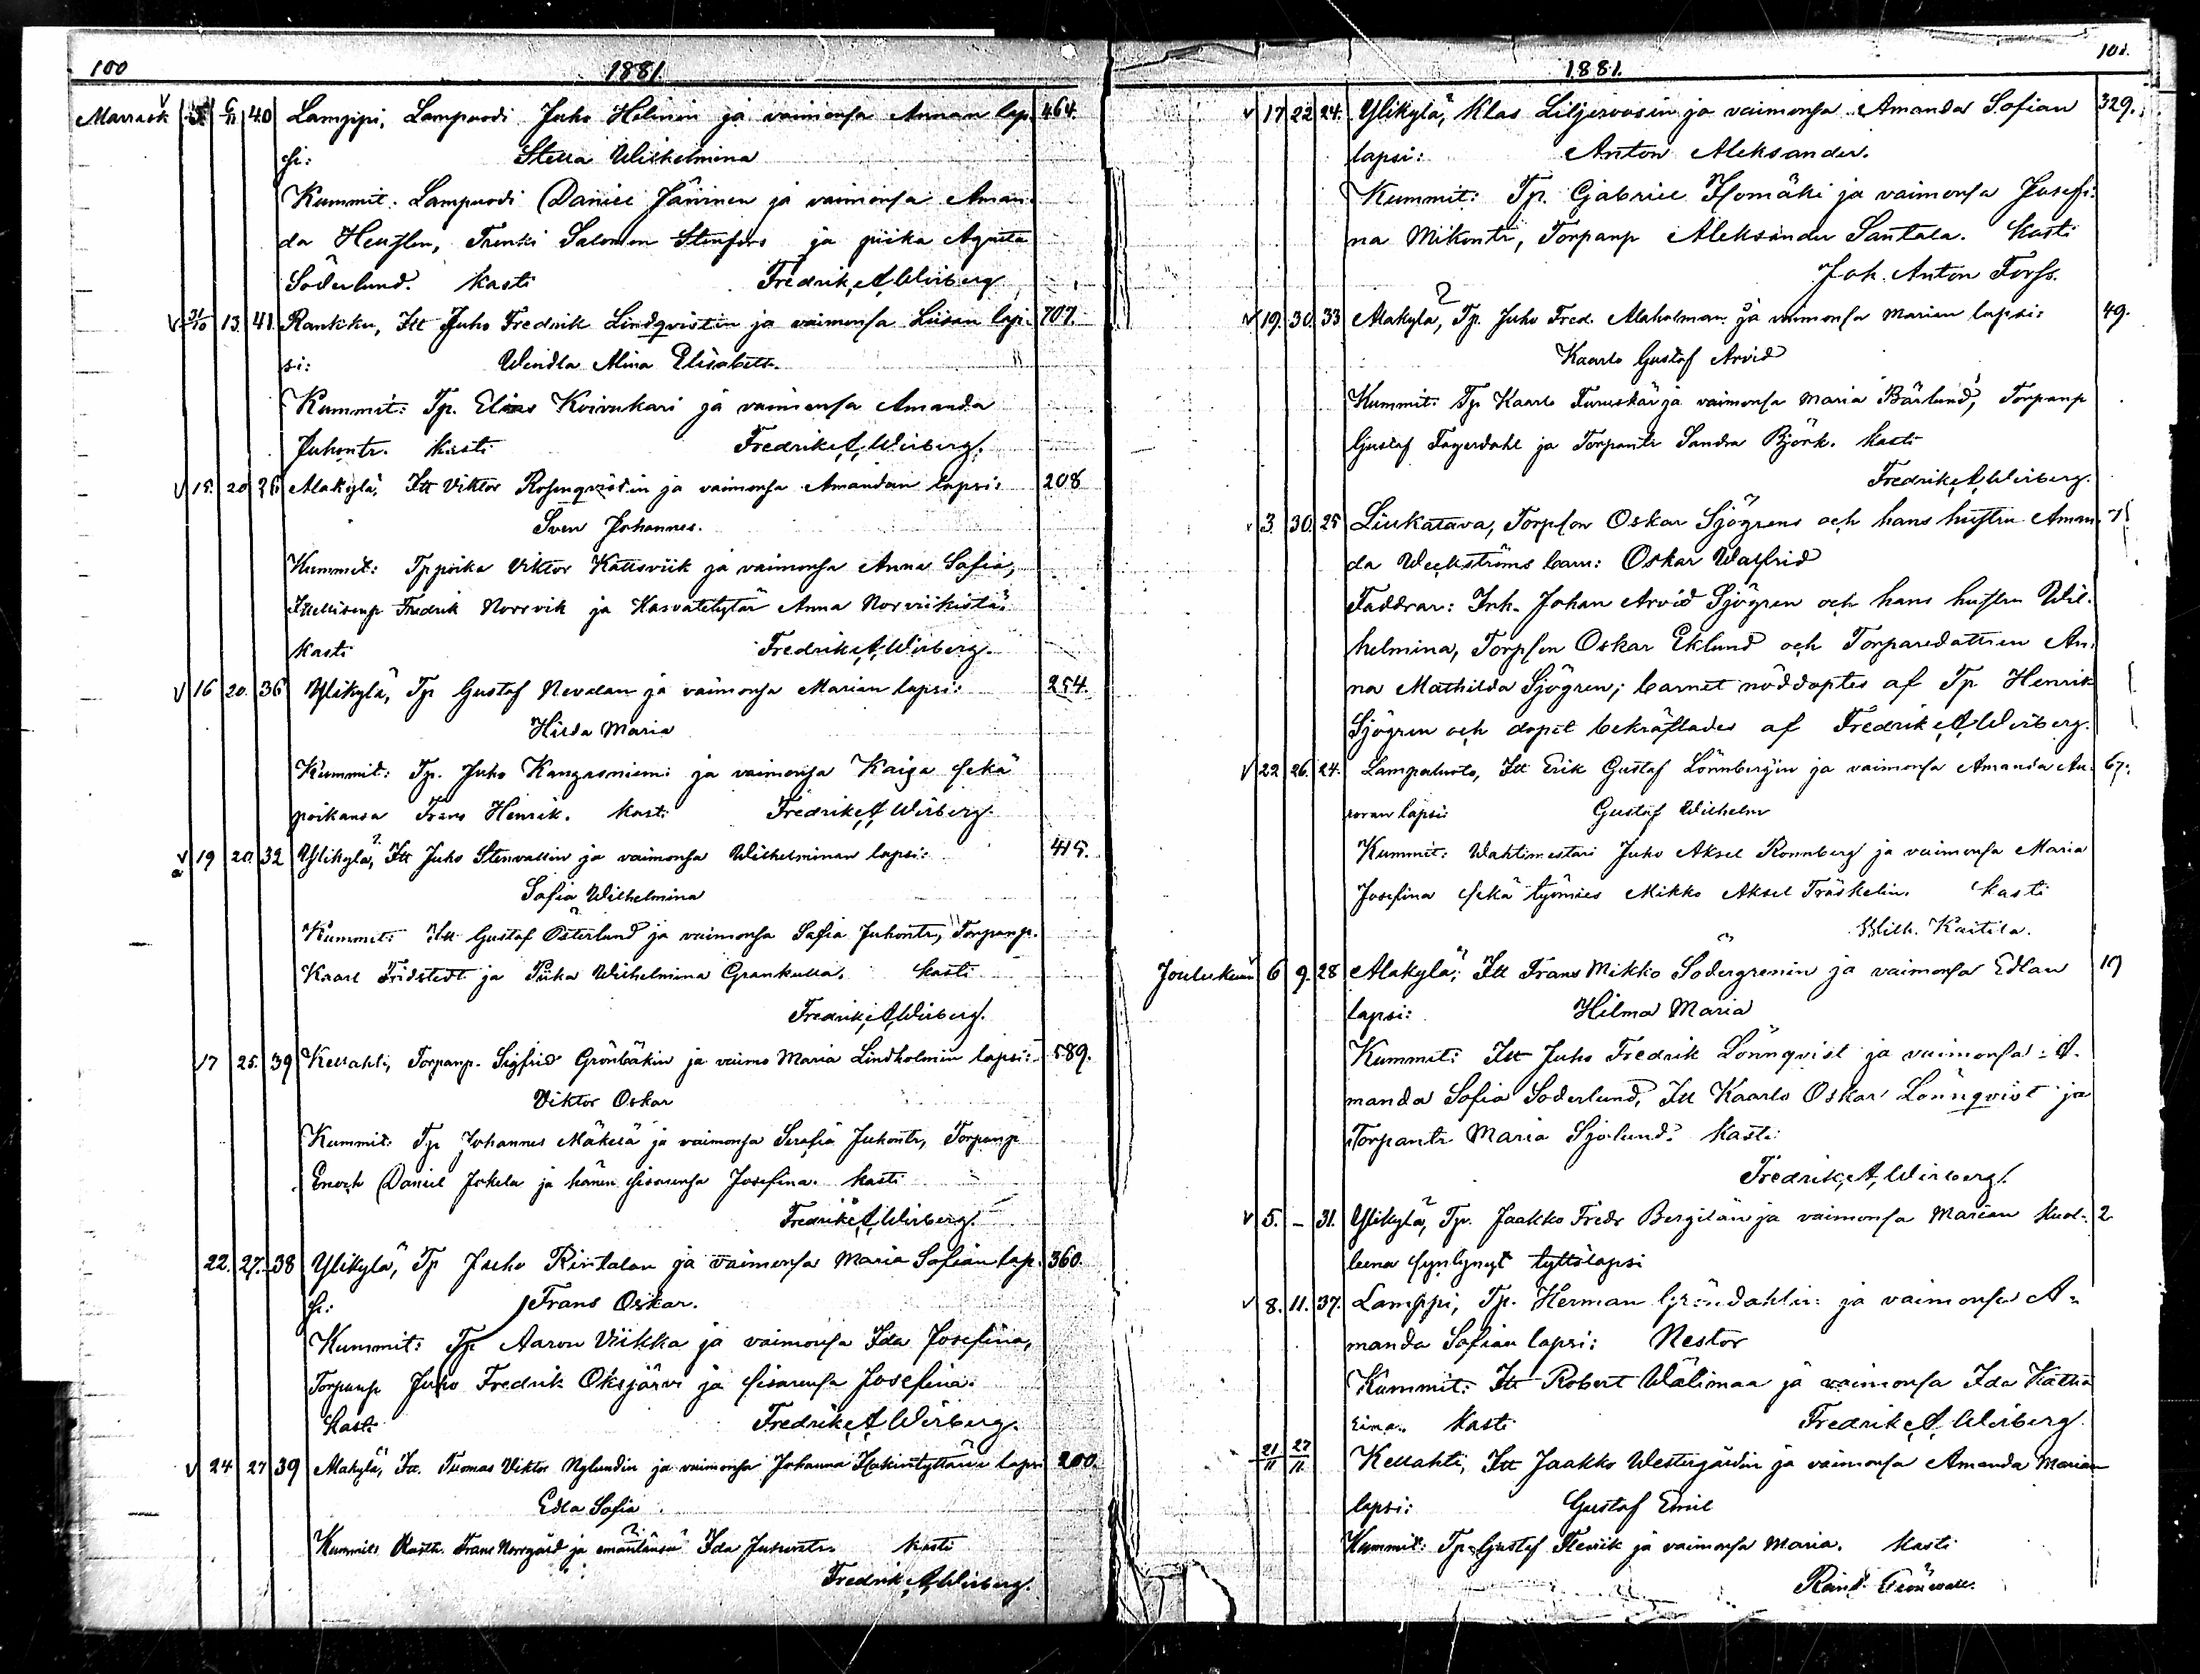 100
1881.
Marrask v 5 6/11 40 Lamppi, Lampuodi Juho Helinin ja vaimonsa Annan lap- 464.
si: Stella Wilhelmina
Kummit: Lampuodi Daniel Järvinen ja vaimonsa Aman-
da Hensten, Trenki Salomon Stenfors ja piika Agata
Söderlund. Kasti Fredrik A. Wirberg
v 31/10 13. 41. Rankku, Itt Juho Fredrik Lindqvistin ja vaimonsa Liisan lap- 707.
si: Wendla Alina Elisabeth.
Kummit: Tp. Elias Koivukari ja vaimonsa Amanda
Juhontr. Kasti Fredrik A. Wirberg.
v 15. 20 36 Alakylä, Itt Viktor Rosenqvistin ja vaimonsa Amandan lapsi: 208
Sven Johannes.
Kummit: Tppoika Viktor Kattsviik ja vaimonsa Anna Sofia,
Itellisenp Fredrik Norrvik ja Kasvatetytär Anna Norviikistä.
Kasti Fredrik A. Wirberg.
v 16 20. 36 Ylikylä, Tp Gustaf Nevalan ja vaimonsa Marian lapsi: 254.
Hilda Maria
Kummit: Tp. Juho Kangasniemi ja vaimonsa Kaisa sekä
poikansa Frans Henrik. Kasti Fredrik A. Wirberg.
v 19 20. 32 Ylikylä, Itt Juho Stenvallin ja vaimonsa Wilhelminan lapsi: 415.
Sofia Wilhelmina
Kummit: Itt Gustaf Österlund ja vaimonsa Sofia Juhontr, Torpanp.
Kaarl Fridstedt ja Piika Wilhelmina Grankulla. Kasti
Fredrik A. Wirberg.
17 25. 39 Kellahti, Torpanp. Sigfrid Grönbäkin ja vaimo Maria Lindholmin lapsi: 589.
Viktor Oskar
Kummit: Tp Johannes Mäkelä ja vaimonsa Serafia Juhontr, Torpanp
Enoch Daniel Jokela ja hänen sisarensa Josefina. Kasti
Fredrik A. Wirberg.
22. 27. 38 Ylikylä, Tp Juho Rintalan ja vaimonsa Maria Sofian lap- 360.
si: Frans Oskar.
Kummit: Tp Aaron Viikka ja vaimonsa Ida Josefina,
Torpanp Juho Fredrik Oksjärvi ja sisarensa Josefina.
Kasti Fredrik A. Wirberg.
v 24 27 39 Alakylä, Itt. Tuomas Viktor Nylundin ja vaimonsa Johanna lapsi 200.
Edla Sofia
Kummit: Frans Norrgård ja emäntänsä Ida Juhontr. Kasti
Fredrik A. Wirberg.
101.
1881.
v 17 22 24. Ylikylä, Klas Liljeroosin ja vaimonsa Amanda Sofian 329.
lapsi: Anton Aleksander.
Kummit: Tp. Gabriel Isomäki ja vaimonsa Josefi-
na Mikontr, Torpanp Aleksander Santala. Kasti
Joh. Anton Forss.
v 19. 30. 33 Alakylä, Tp. Juho Fred. Alaholman ja vaimonsa Marian lapsi: 49.
Kaarlo Gustaf Arvid
Kummit: Tp Kaarlo Furuskär ja vaimonsa Maria Bärlund, Torpanp
Gustaf Fagerdahl ja Torpantr Sandra Björk. Kasti
Fredrik A. Wirberg.
3. 30. 25 Liukatava, Torpson Oskar Sjögrens och hans hustru Aman-
da Weckströms barn: Oskar Walfrid
Faddrar: Inh. Johan Arvid Sjögren och hans hustru Wil-
helmina, Torpson Oskar Eklund och Torparedattren An-
na Mathilda Sjögren; barnet nöddöptes af Tp Henrik
Sjögren och dopet bekräftades af Fredrik A. Wirberg.
v 22 26. 24. Lampaluoto, Itt Erik Gustaf Lönnbergin ja vaimonsa Amanda Au- 67.
roran lapsi: Gustaf Wilhelm
Kummit: Wahtimestari Juho Aksel Rönnberg ja vaimonsa Maria
Josefina sekä työmies Mikko Aksel Träskelin. Kasti
Wilh. Kaitila.
Joulukuu 6 9. 28 Alakylä, Itt Frans Mikko Södergrenin ja vaimonsa Edlan 19
lapsi: Hilma Maria
Kummit: Itt Juho Fredrik Lönnqvist ja vaimonsa A-
manda Sofia Söderlund, Itt Kaarlo Oskar Lönnqvist ja
Torpantr Maria Sjölund. Kasti
Fredrik A. Wirberg.
v 5. – 31. Ylikylä, Tp. Jaakko Fredr Bergilän ja vaimonsa Marian kuol- 2
leena syntynyt tyttölapsi
v 8. 11. 37. Lamppi, Tp. Herman Gröndahlin ja vaimonsa A-
manda Sofian lapsi: Nestor
Kummit: Itt Robert Wälimaa ja vaimonsa Ida Katha-
rina. Kasti Fredrik A. Wirberg
21/11 27/11 Kellahti, Itt Jaakko Westergårdin ja vaimonsa Amanda Marian
lapsi: Gustaf Emil
Kummit: Tp Gustaf Flewiik ja vaimonsa Maria. Kasti
Reinh. Grönvall.